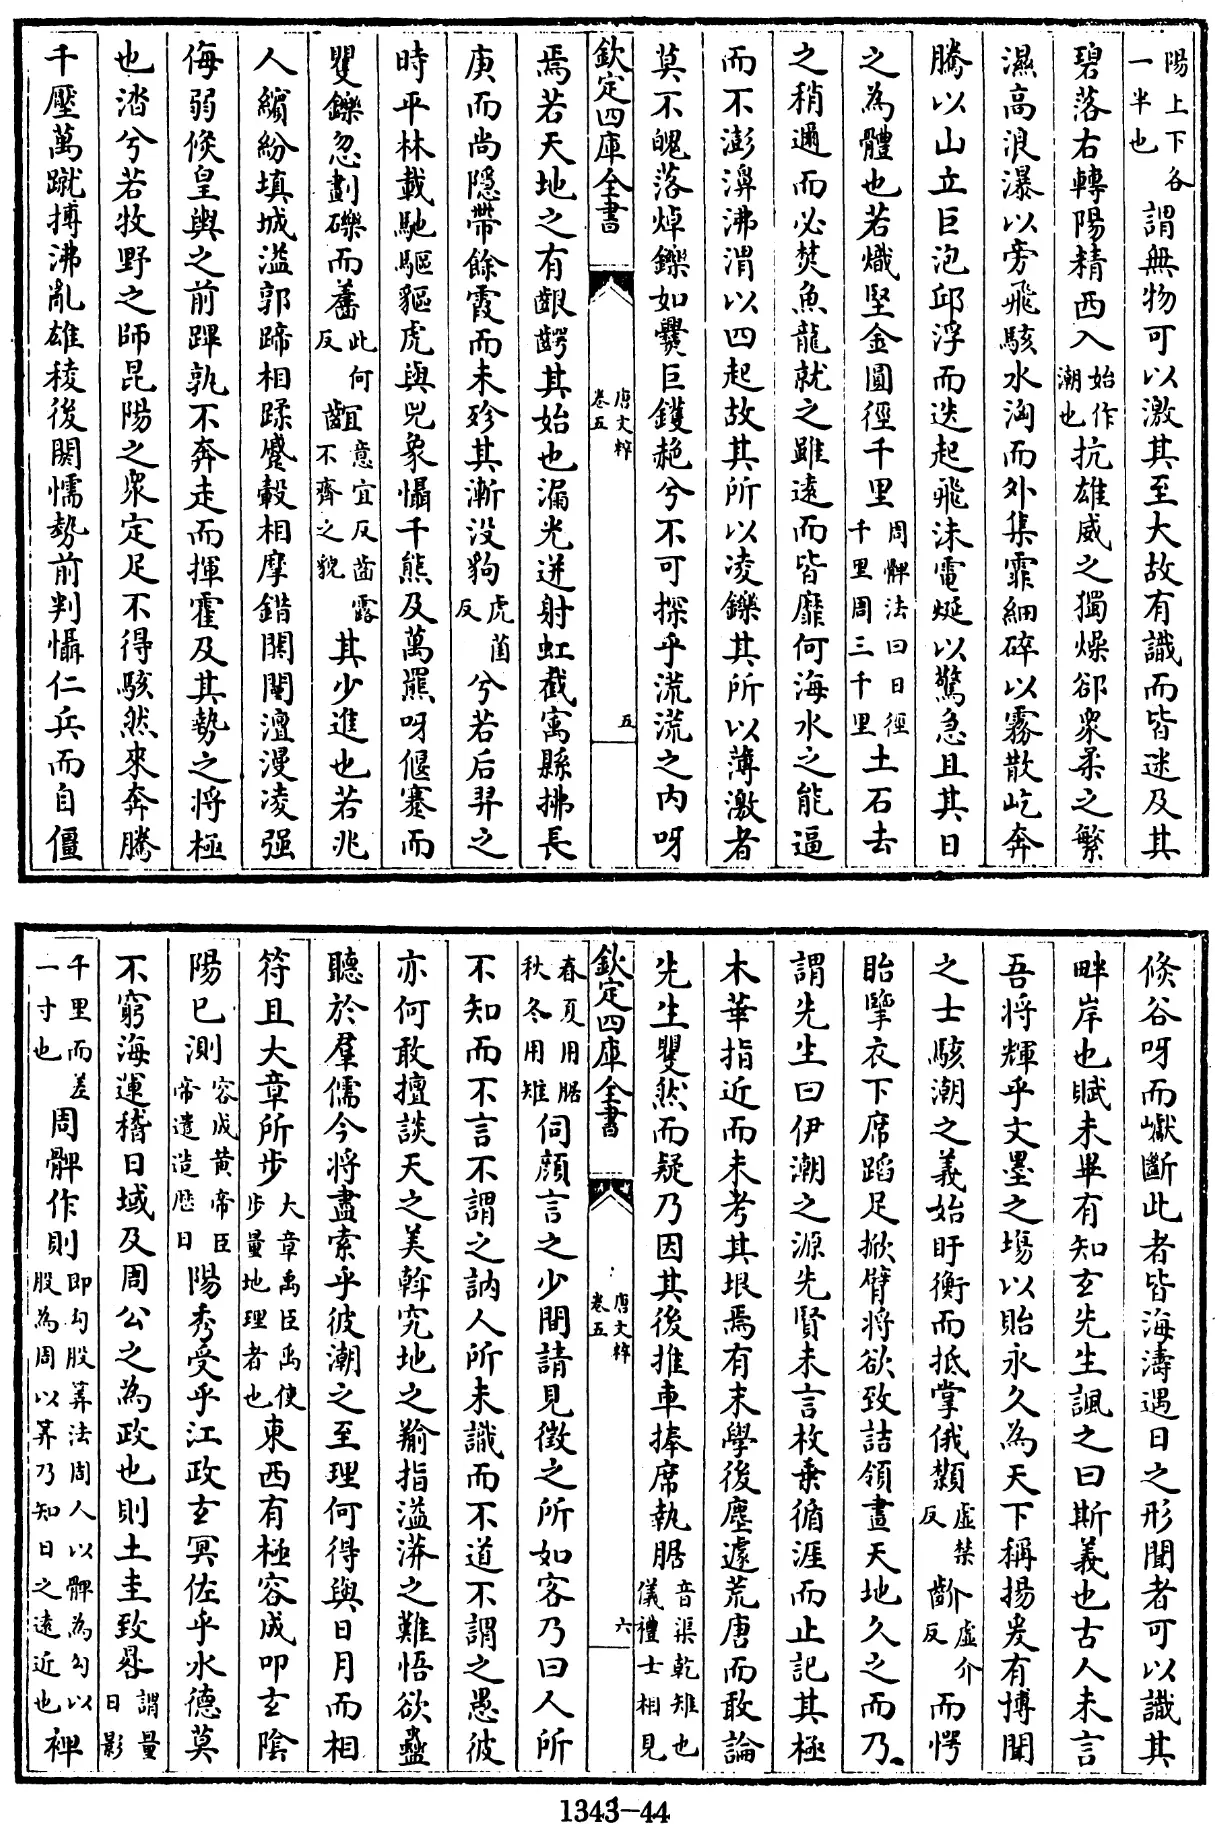 陽上下各
一半也
謂無物可以激其至大故有識而皆迷及其
碧落右轉陽精西入
始作
潮也
抗雄威之獨燥卻衆柔之繁
濕高浪瀑以旁飛駭水洶而外集霏細碎以霧散屹奔
騰以山立巨泡邱浮而迭起飛沫電烻以驚急且其日
之為體也若熾堅金圓徑千里
周髀法曰日徑
千里周三千里
土石去
之稍邇而必焚魚龍就之雖遠而皆靡何海水之能逼
而不澎濞沸渭以四起故其所以凌鑠其所以薄激者
莫不魄落焯鑠如爨巨鑊赩兮不可探乎流流之内呀
欽定四庫全書
唐文粹
卷五
五
焉若天地之有齦齶其始也漏光迸射虹截寓縣拂長
庚而尚隱帶餘霞而未殄其漸没狗
虎菌
反
兮若后羿之
時平林載馳驅貙虎與兕象懾千熊及萬羆呀偃蹇而
矍鑠忽劃礫而齹
此何
反
齟
意宜反齒露
不齊之貌
其少進也若兆
人繽紛填城溢郭蹄相蹂蹙轂相摩錯閧闠澶漫凌强
侮弱倏皇輿之前蹕孰不奔走而揮霍及其勢之將極
也渻兮若牧野之師昆陽之衆定足不得駭然來奔騰
千壓萬蹴搏沸亂雄稜後閼懦勢前判懾仁兵而自僵
倐谷呀而巘斷此者皆海濤遇日之形聞者可以識其
畔岸也賦未畢有知玄先生諷之曰斯義也古人未言
吾將輝乎文墨之塲以貽永久為天下稱揚爰有博聞
之士駭潮之義始盱衡而抵掌俄䫴
虚禁
反
齘
虚介
反
而愕
眙攣衣下席蹈足掀臂將欲致詰領畫天地久之而乃
謂先生曰伊潮之源先賢未言枚乗循涯而止記其極
木華指近而未考其垠焉有末學後塵遽荒唐而敢論
先生矍然而疑乃因其後推車捧席執腒
音渠乾雉也
儀禮士相見
欽定四庫全書
唐文粹
卷五
六
春夏用腒
秋冬用雉
伺顔言之少間請見徵之所如客乃曰人所
不知而不言不謂之訥人所未識而不道不謂之愚彼
亦何敢擅談天之美斡究地之㺃指溢漭之難悟欲蠱
聽於羣儒今將盡索乎彼潮之至理何得與日月而相
符且大章所步
大章禹臣禹使
步量地理者也
東西有極容成叩玄陰
陽已測
容成黄帝臣
帝遣造厯日
陽秀受乎江政玄冥佐乎水德莫
不窮海運稽日域及周公之為政也則土圭致晷
謂量
日影
千里而差
一寸也
周髀作則
即勾股筭法周人以髀為勾以
股為周以筭乃知日之遠近也
裨
1343-44